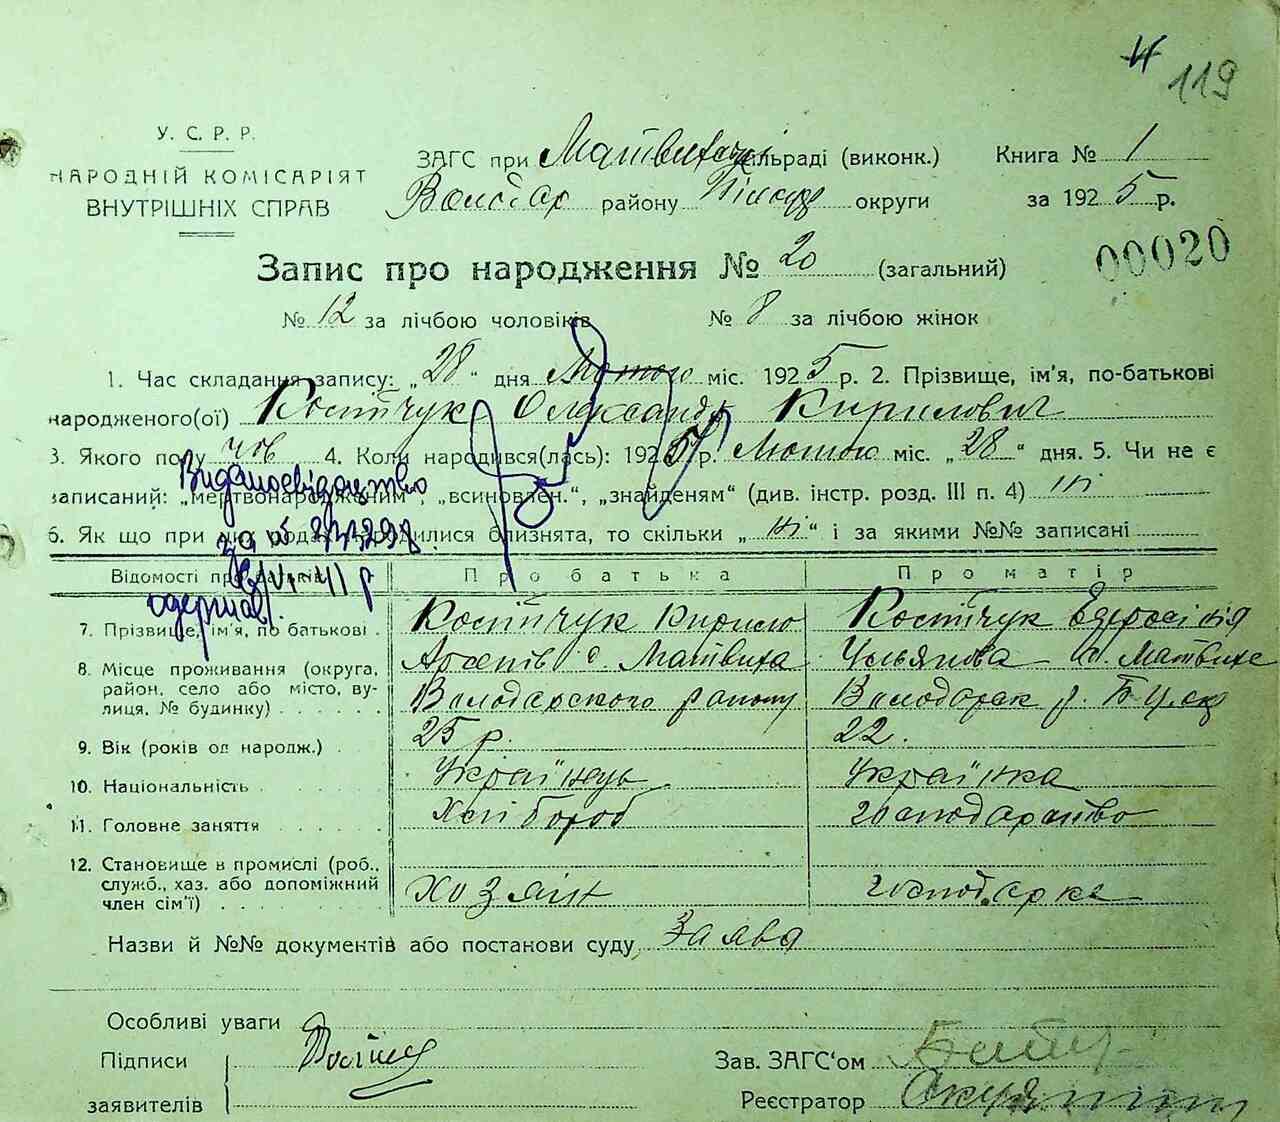 119
У. С. Р. Р.
НАРОДНІЙ КОМІСАРІЯТ
ВНУТРІШНІХ СПРАВ
ЗАГС при Матвиха сільраді (виконк.)
Володар району Білоц округи
Книга № 1
за 1925 р.
00020
Запис про народження № 20 (загальний)
№ 12 за лічбою чоловіків № 8 за лічбою жінок
1. Час складання запису: „28" дня Лютого міс. 1925 р. 2. Прізвище, ім'я, по-батькові
народженого(ої) Костічук Олександр Кирилович
3. Якого полу чов 4. Коли народився(лась): 1925 р. Лютого міс. „28" дня. 5. Чи не є
записаний: „мертвонародженим", „всиновлен.", „знайденям" (див. інстр. розд. III п. 4) ні
6. Як що при родах народилися близнята, то скільки „ні" і за якими №№ записані
Видано свідоцтво
за №
одержав
Відомості про батьків Про батька Про матір
7. Прізвище, ім'я, по батькові Костічук Кирило Костічук
8. Місце проживання (округа, с. Матвиха Ульянова с. Матвихе
район, село або місто, ву- Володарского району Володарск р. Б Ц
лиця, № будинку)
9. Вік (років од народж.) 25 р. 22.
10. Національність Українець Українка
11. Головне заняття Хлібороб господарство
12. Становище в промислі (роб.,
служб., хаз. або допоміжний хозяїн господарка
член сім'ї)
Назви й №№ документів або постанови суду Заява
Особливі уваги
Підписи
заявителів
Зав. ЗАГС'ом
Реєстратор